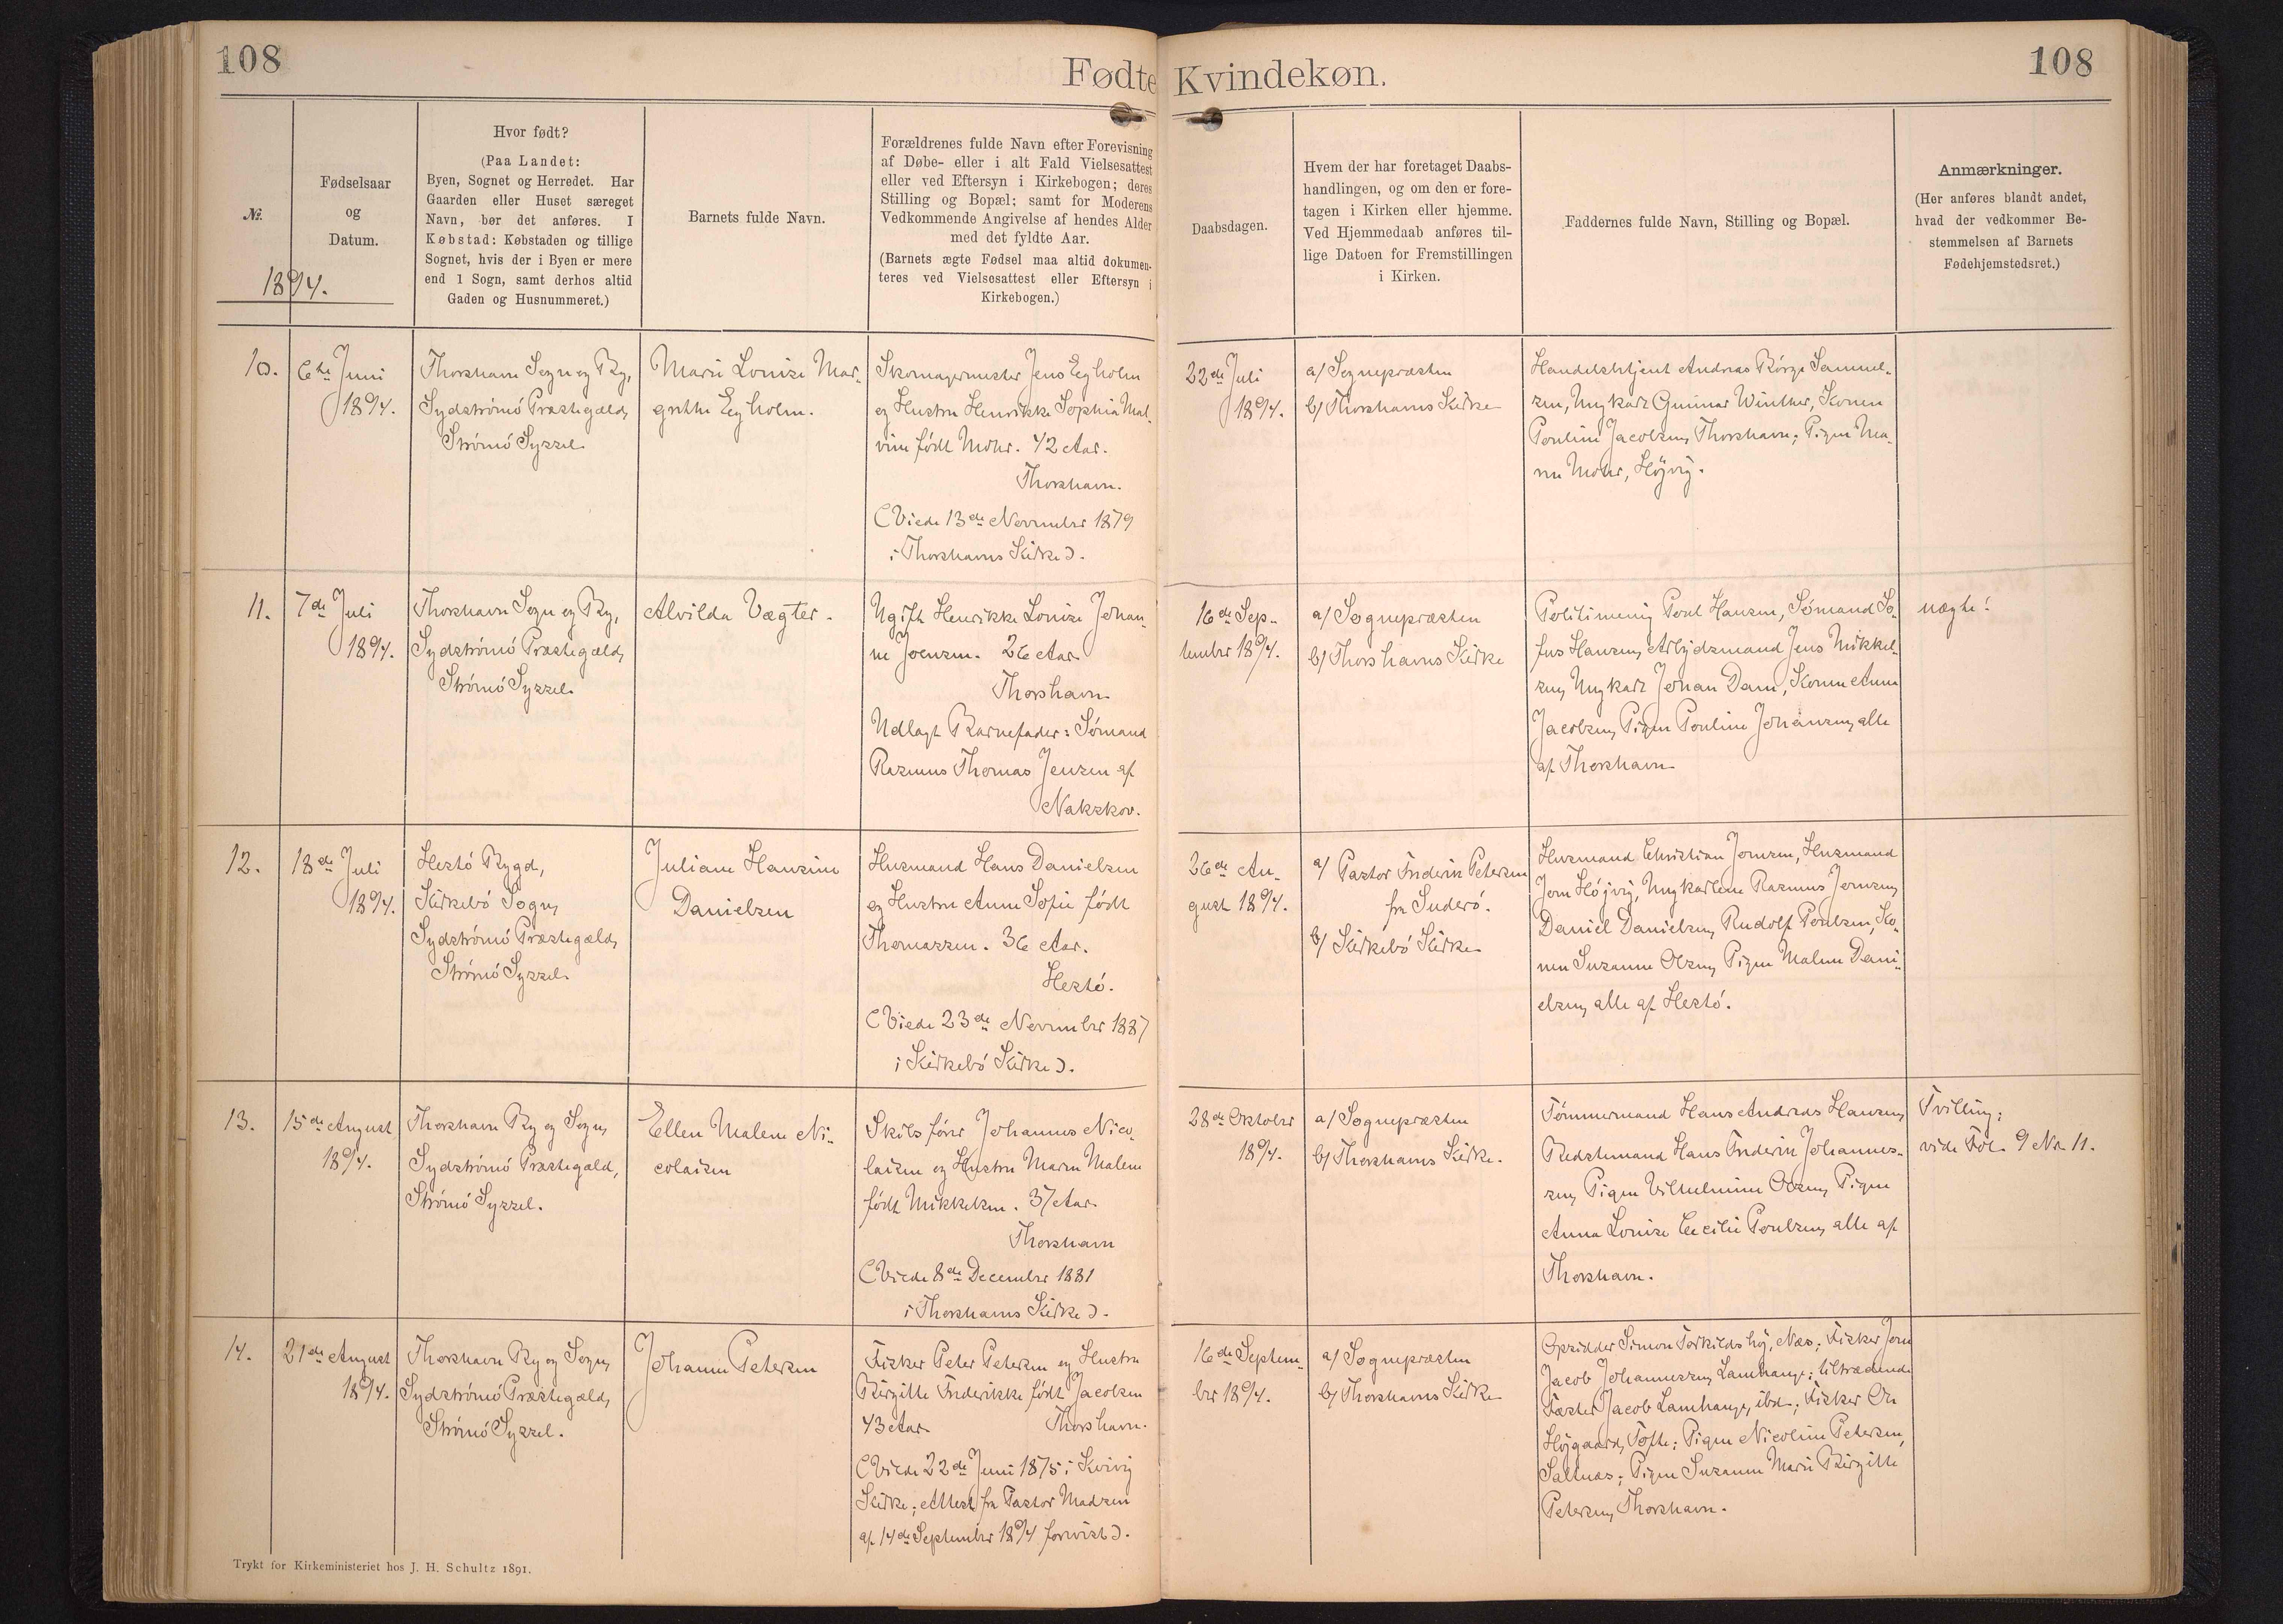 108
Fødte
Kvindekøn.
108
№.
1894.
Fødselsaar
og
Datum.
Hvor født?
(Paa Landet:
Byen, Sognet og Herredet. Har
Gaarden eller Huset særeget
Navn, bør det anføres. I
Købstad: Købstaden og tillige
Sognet, hvis der i Byen er mere
end 1 Sogn, samt derhos altid
Gaden og Husnummeret.)
Barnets fulde Navn.
Forældrenes fulde Navn efter Forevisning
af Døbe- eller i alt Fald Vielsesattest
eller ved Eftersyn i Kirkebogen; deres
Stilling og Bopæl; samt for Moderens
Vedkommende Angivelse af hendes Alder
med det fyldte Aar.
(Barnets ægte Fødsel maa altid dokumen-
teres ved Vielsesattest eller Eftersyn i
Kirkebogen.)
Daabsdagen.
Hvem der har foretaget Daabs-
handlingen, og om den er fore-
tagen i Kirken eller hjemme.
Ved Hjemmedaab anføres til-
lige Datoen for Fremstillingen
i Kirken.
Faddernes fulde Navn, Stilling og Bopæl.
Anmærkninger.
(Her anføres blandt andet,
hvad der vedkommer Be-
stemmelsen af Barnets
Fødehjemstedsret.)
10.
6te Juni
1894.
Thorshavn Sogn og By,
Sydströmö Præstegæld,
Strömö Syssel
Marie Louise Mar-
grethe Eyholm.
Skomagermester Jens Eyholm
og Hustru Henrikke Sophia Mal-
vine født Mohr. 42 Aar.
Thorshavn.
(Viede 13de November 1879
i Thorshavns Kirke).
22de Juli
1894.
a/ Sognepræsten
b/ Thorshavns Kirke
Handelsbetjent Andreas Börge Samuel-
sen, Ungkarl Gunnar Winther, Konen
Pouline Jacobsen, Thorshavn; Pigen Ma-
rie Mohr, Höjvig.
11.
7de Juli
1894.
Thorshavn Sogn og By,
Sydströmö Præstegæld,
Strömö Syssel.
Alvilda Vægter.
Ugift Henrikke Louise Johan-
ne Joensen. 26 Aar
Thorshavn
Udlagt Barnefader: Sömand
Rasmus Thomas Jensen af
Nakskov.
16de Sep-
tember 1894.
a/ Sognepræsten
b/ Thorshavns Kirke
Politimenig Poul Hansen, Sömand So-
fus Hansen, Arbejdsmand Jens Mikkel-
sen, Ungkarl Johan Dam, Konen Anna
Jacobsen, Pigen Pouline Johansen, alle
af Thorshavn
uægte!
12.
18de Juli
1894.
Hestö Bygd,
Kirkebö Sogn,
Sydströmö Præstegæld,
Strömö Syssel.
Juliane Hansine
Danielsen
Husmand Hans Danielsen
og Hustru Anne Sofie født
Thomassen. 36 Aar.
Hestö.
(Viede 23de November 1887
i Kirkebö Kirke).
26de Au-
gust 1894.
a/ Pastor Frederik Petersen
fra Suderö.
b/ Kirkebö Kirke
Husmand Christian Joensen, Husmand
Joen Höjvig, Ungkarlene Rasmus Joensen,
Daniel Danielsen, Rudolf Poulsen, Ko-
nen Susanne Olsen, Pigen Malene Dani-
elsen, alle af Hestö.
13.
15de August
1894.
Thorshavn By og Sogn,
Sydströmö Præstegæld,
Strömö Syssel.
Ellen Malene Ni-
colaisen
Skibsförer Johannes Nico-
laisen og Hustru Maren Malene
født Mikkelsen. 37 Aar
Thorshavn
(Viede 8de December 1881
i Thorshavns Kirke).
28de Oktober
1894.
a/ Sognepræsten
b/ Thorshavns Kirke.
Tömmermand Hans Andreas Hansen,
Bedstemand Hans Frederik Johannes-
sen, Pigen Vilhelmine Olsen, Pigen
Anna Louise Cecilie Poulsen, alle af
Thorshavn.
Tvilling;
vide Fol. 9 No 11.
14.
21de August
1894.
Thorshavn By og Sogn,
Sydströmö Præstegæld,
Strömö Syssel.
Johanne Petersen
Fisker Peter Petersen og Hustru
Birgitte Frederikke født Jacobsen
43 Aar
Thorshavn.
(Viede 22de Juni 1875 i Kvivig
Kirke; Attest fra Pastor Madsen
af 14de September 1894 forevist).
16de Septem-
ber 1894.
a/ Sognepræsten
b/ Thorshavns Kirke
Opsidder Simon Torkildshöj, Næs; Fisker Joen
Jacob Johannessen, Lamhauge; tiltrædende
Fæster Jacob Lamhauge, ibd.; Fisker Ole
Höjgaard, Tofte; Pigen Nicoline Petersen,
Saltnæs; Pigen Susanne Marie Birgitte
Petersen, Thorshavn.
Trykt for Kirkeministeriet hos J. H. Schultz 1891.